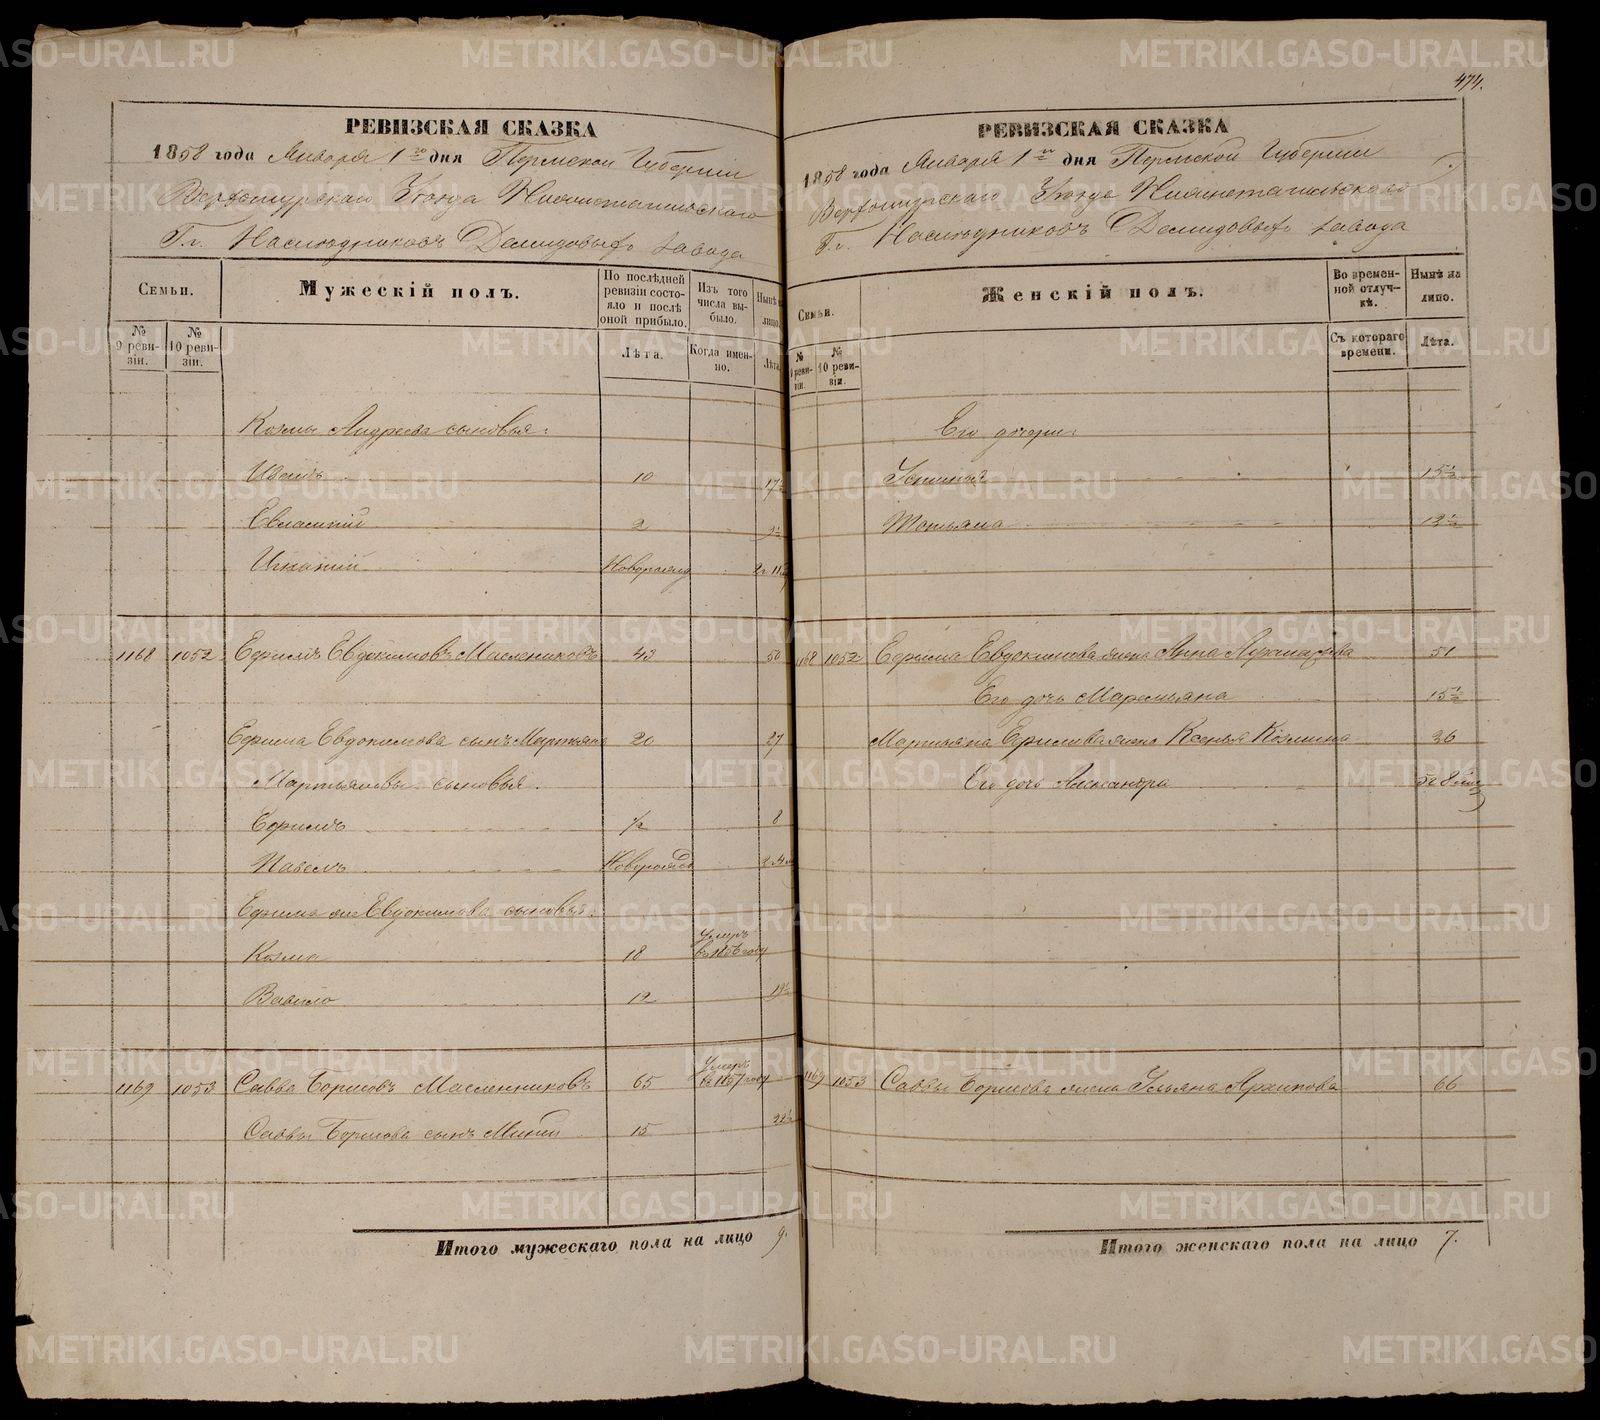 474.
РЕВИЗСКАЯ СКАЗКА
1858 года Января 1го дня Пермской Губернии
Верхотурскаго Уезда Нижнетагильскаго
Гг. Наследниковъ Демидовыхъ завода
Семьи.
№ 9 ревизіи.
№ 10 ревизіи.
Мужескій полъ.
По послѣдней ревизіи состояло и послѣ оной прибыло.
Лѣта.
Изъ того числа выбыло.
Когда именно.
Нынѣ на лицо.
Лѣта.
Козмы Андреева сыновья:
Иванъ 10 17½
Евлампій 2 9½
Игнатій Новорожд
1168 1052 Ефимъ Евдокимовъ Маслениковъ 43 50
Ефима Евдокимова сынъ Мартьянъ 20 27
Мартьяновы сыновья.
Ефимъ ½ 8
Павелъ Новорожд
Ефима же Евдокимова сыновья:
Козма 18 Умеръ въ году
Вавило 12 19½
1169 1053 Савва Борисовъ Маслениковъ 65 Умеръ въ 1857 году
Саввы Борисова сынъ Михей 15 22½
Итого мужескаго пола на лицо 9.
РЕВИЗСКАЯ СКАЗКА
1858 года Января 1го дня Пермской Губерніи
Верхотурскаго Уезда Нижнетагильскаго
Гг. Наследниковъ Демидовыхъ завода
Семьи.
№ 9 ревизіи.
№ 10 ревизіи.
Женскій полъ.
Во временной отлучкѣ.
Съ котораго времени.
Нынѣ на лицо.
Лѣта.
Его дочери:
Устинья 15½
Татьяна 12½
1168 1052 Ефима Евдокимова жена Анна 51
Его дочь Маремьяна 15½
Мартьяна Ефимова жена Ксенья Козмина 26
Его дочь Александра
1169 1053 Саввы Борисова жена Ульяна Архипова 66
Итого женскаго пола на лицо 7.
METRIKI.GASO-URAL.RU